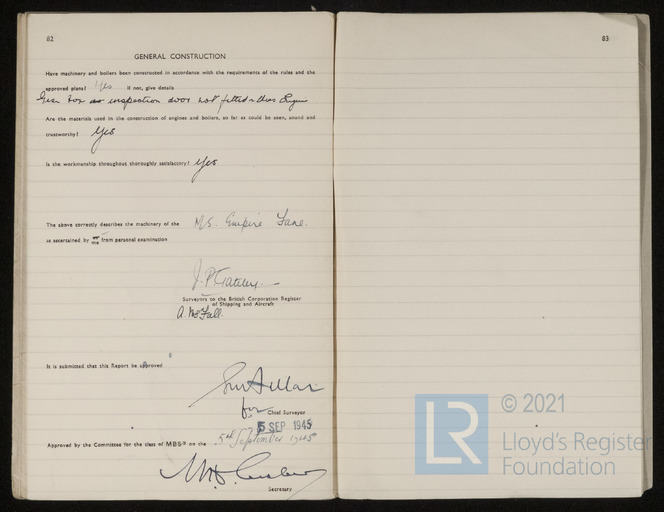 82
GENERAL CONSTRUCTION
Have machinery and boilers been constructed in accordance with the requirements of the rules and the
approved plans? Yes If not, give details
Gear box inspection door not fitted
Are the materials used in the construction of engines and boilers, so far as could be seen, sound and
trustworthy? Yes
Is the workmanship throughout thoroughly satisfactory? Yes
The above correctly describes the machinery of the M/S. Empire Fane.
as ascertained by me from personal examination
Surveyors to the British Corporation Register
of Shipping and Aircraft
A. McFall.
It is submitted that this Report be approved
for Chief Surveyor
5 SEP 1945
Approved by the Committee for the class of MBS* on the 5th September 1945
Secretary
83
LR
© 2021
Lloyd's Register
Foundation